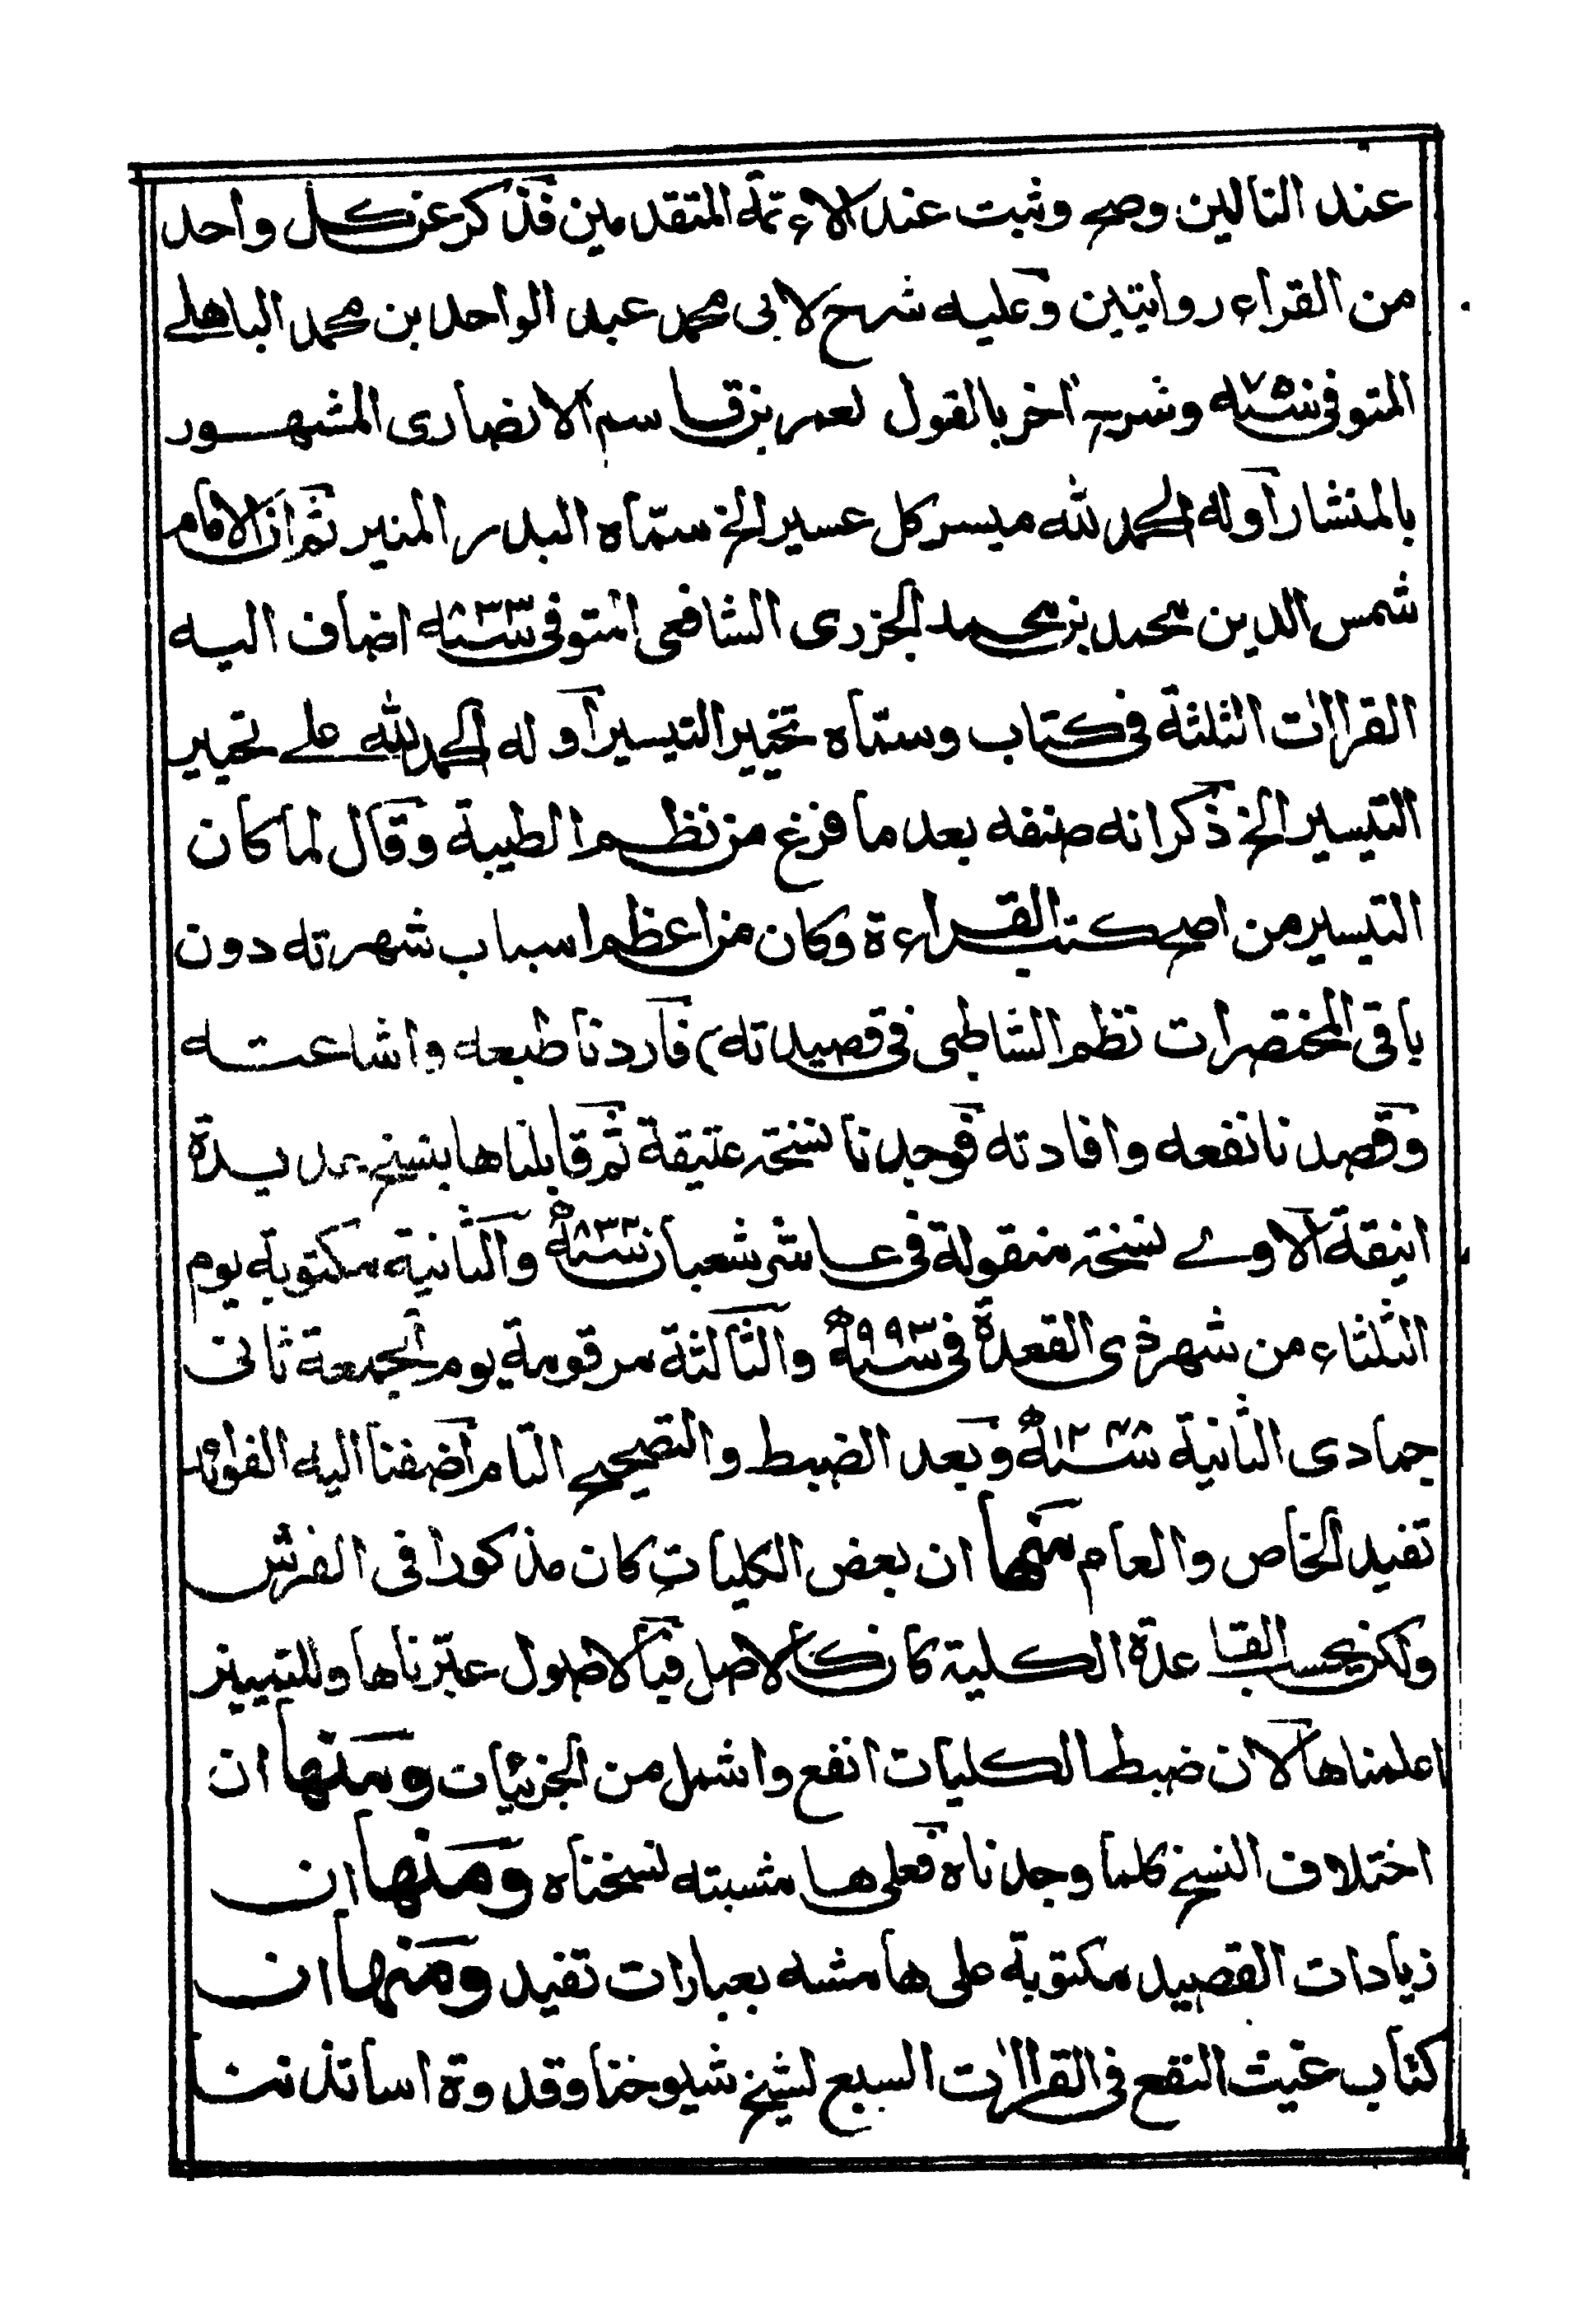 عند التالين وصح وثبت عند الاءئمة المتقدمين فذكر عن كل واحد
من القراء روايتين وعليه شرح لابى محمد عبد الواحد بن محمد الباهلے
المتوفى سنة ٧٥٠ وشرح اخر بالقول لعمر بن قاسم الانصارى المشهور
بالمنشار اوله الحمد لله ميسر كل عسير الخ سمّاه البدر المنير ثم ان الامام
شمس الدين محمد بن محمد الجزرى الشافعى المتوفى سنة ٨٣٣ اضاف اليه
القراات الثلثة فى كتاب وسمّاه تحبير التيسير اوله الحمد لله علے تحبير
التيسير الخ ذكر انه صنفه بعد ما فرغ من نظم الطيبة وقال لما كان
التيسير من اصح كتب القراءة وكان من اعظم اسباب شهرته دون
باقى المختصرات نظم الشاطبى فى قصيدته) فاردنا طبعه واشاعته
وقصدنا نفعه وافادته فوجدنا نسخة عتيقة ثم قابلناها بنسخ عديدة
انيقة الاولے نسخة منقولة فى عاشر شعبان سنة ٨٣٣ه والثانية مكتوبة يوم
الثلثاء من شهر ذى القعدة فى سنة ٩٩٣ه والثالثة مرقومة يوم الجمعة ثانى
جمادى الثانية سنة ه وبعد الضبط والتصحيح التام اضفنا اليه الفوائد
تفيد الخاص والعام منها ان بعض الكليات كان مذكورا فى الفرش
ولكن بحسب القاعدة الكلية كان كالاصل فبالاصول عبّرناها وللتمييز
اعلمناها لان ضبط الكليات انفع واشمل من الجزئيات ومنها ان
اختلاف النسخ كلما وجدناه فعلى ها مشبته نسخناه ومنها ان
زيادات القصيد مكتوبة على هامشه بعبارات تفيد ومنها ان
كتاب غيث النفع فى القراات السبع لشيخ شيوخنا وقدوة اساتذتنا